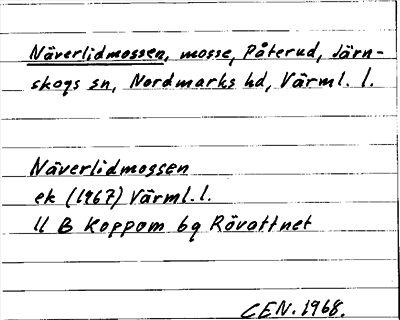 Näverlidmossen, mosse, Påterud, Järn-
skogs sn, Nordmarks hd, Värml. l.
Näverlidmossen
ek (1967) Värml. l.
11 B Koppom 6g Rövattnet
CEN. 1968.